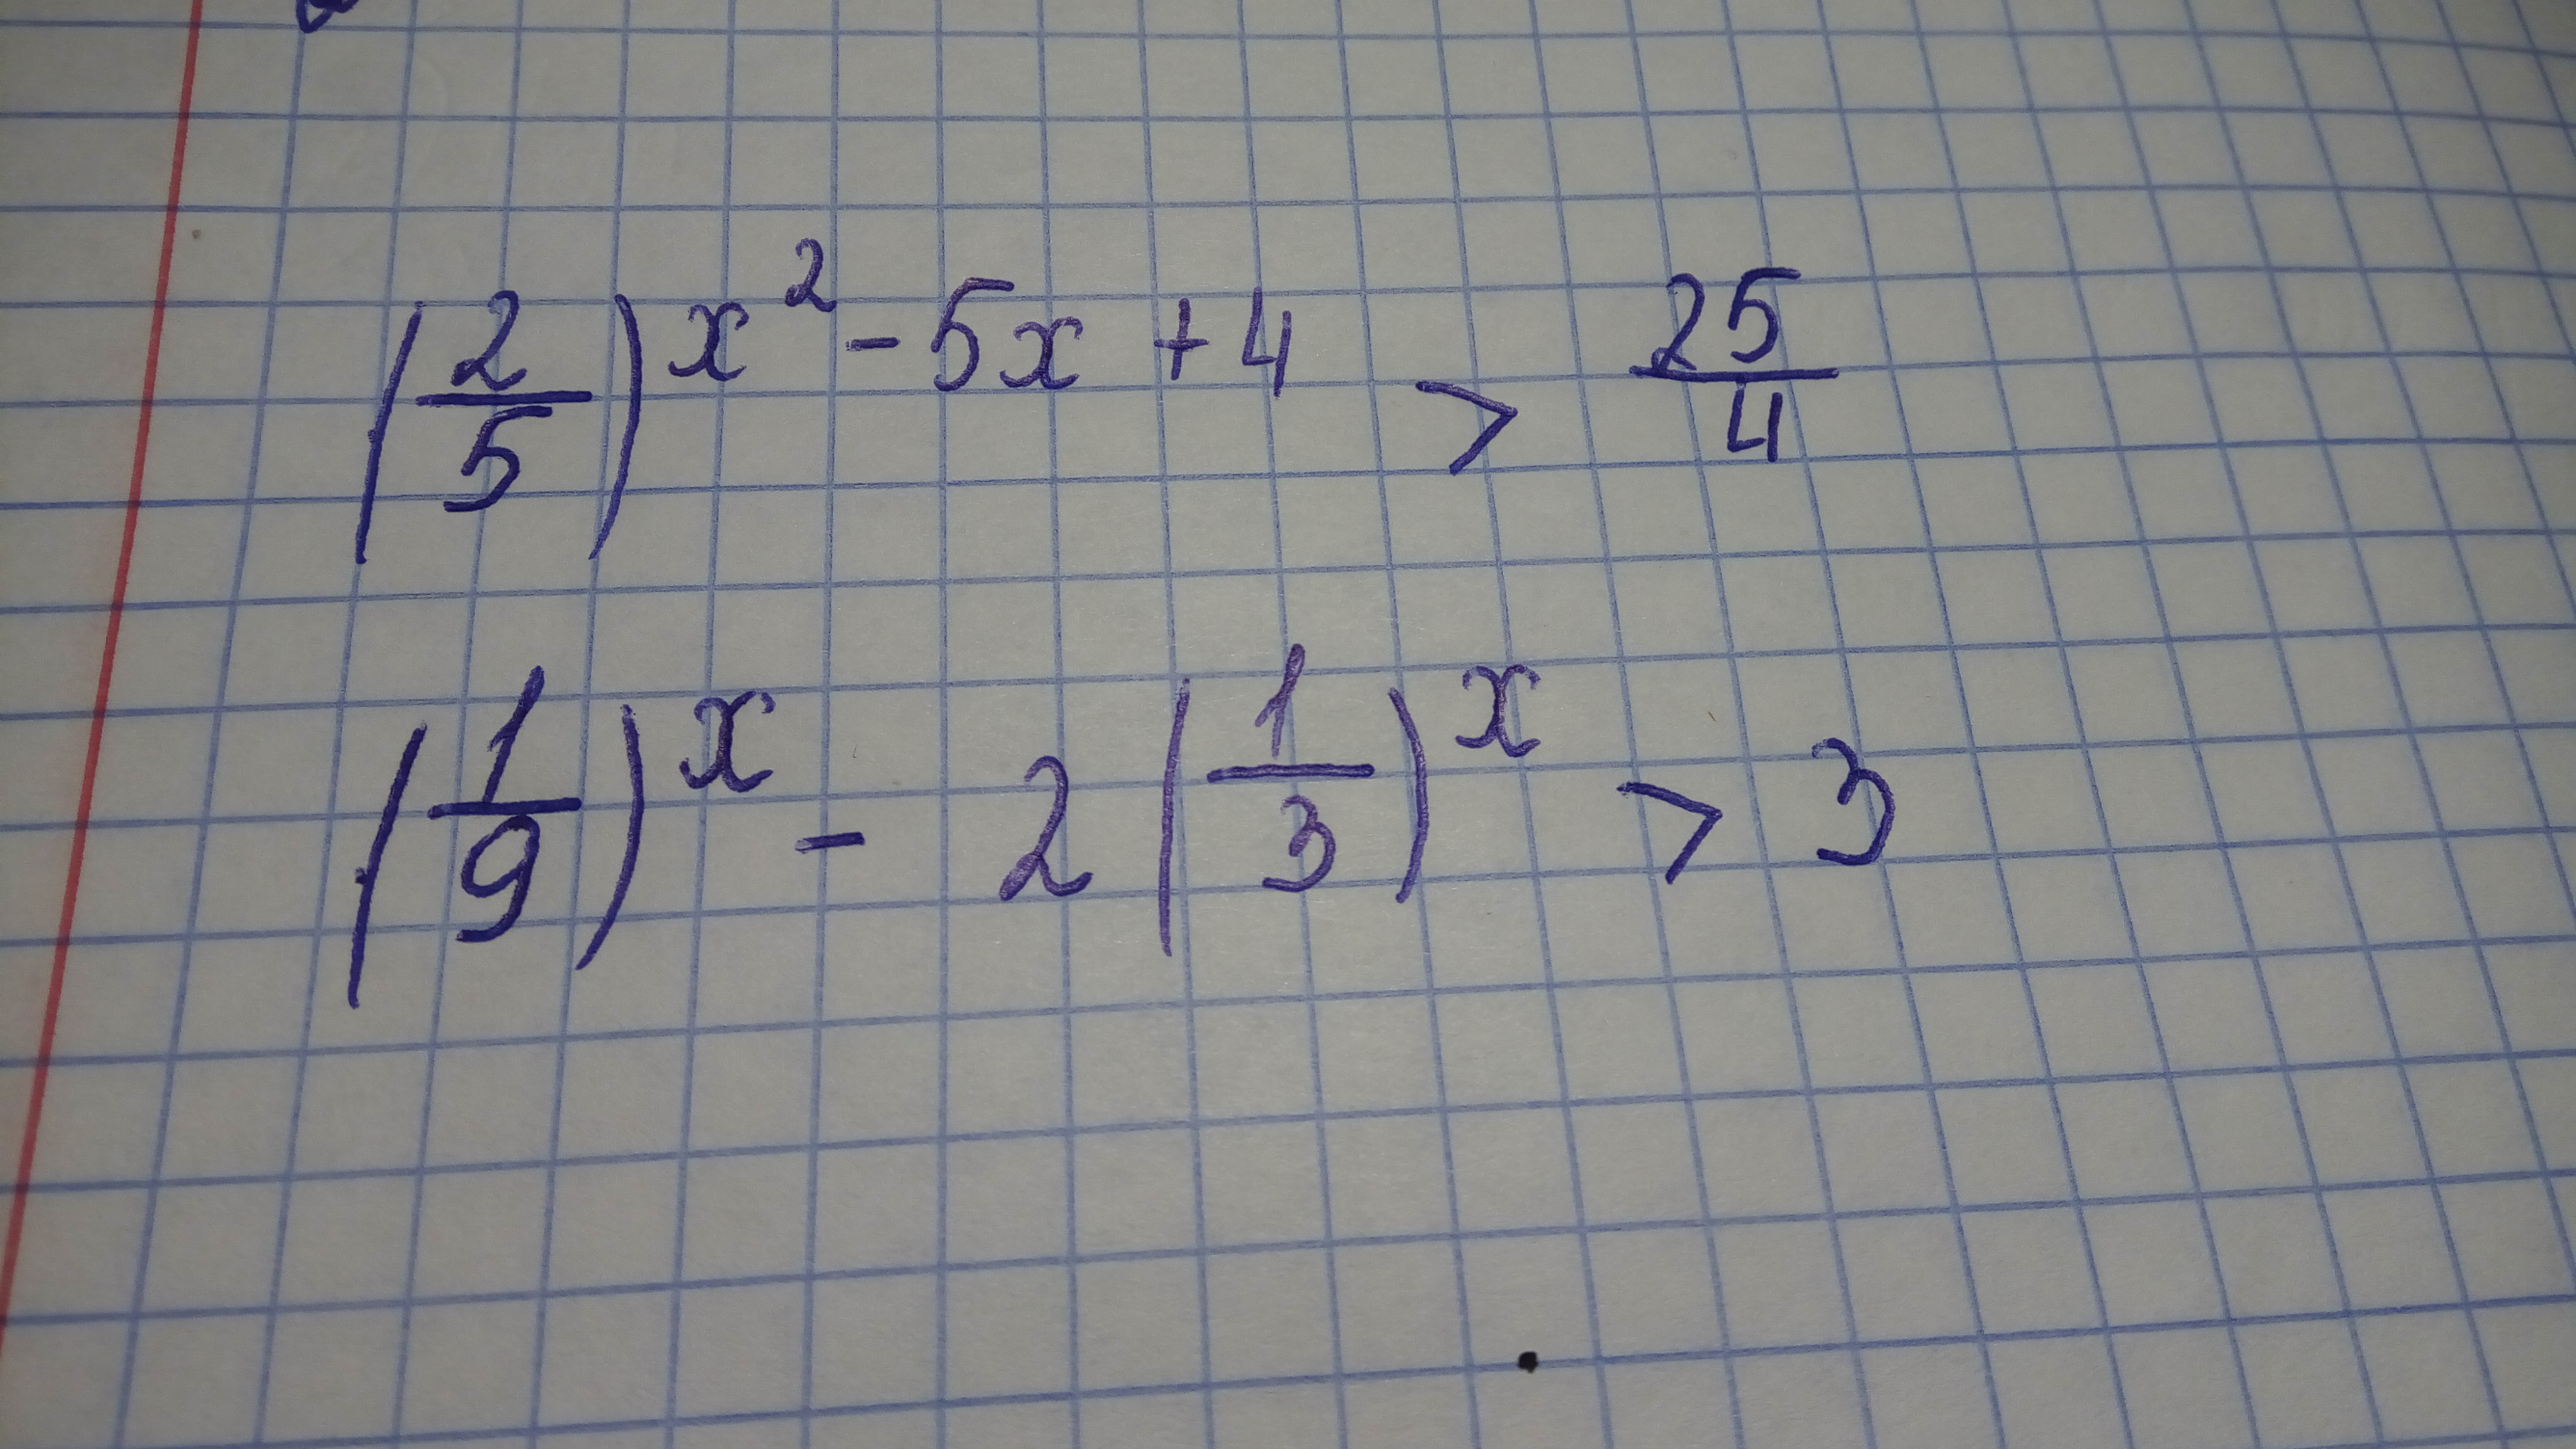 (2/5)^x² - 5x + 4 > 25/4
(1/9)^x - 2(1/3)^x > 3